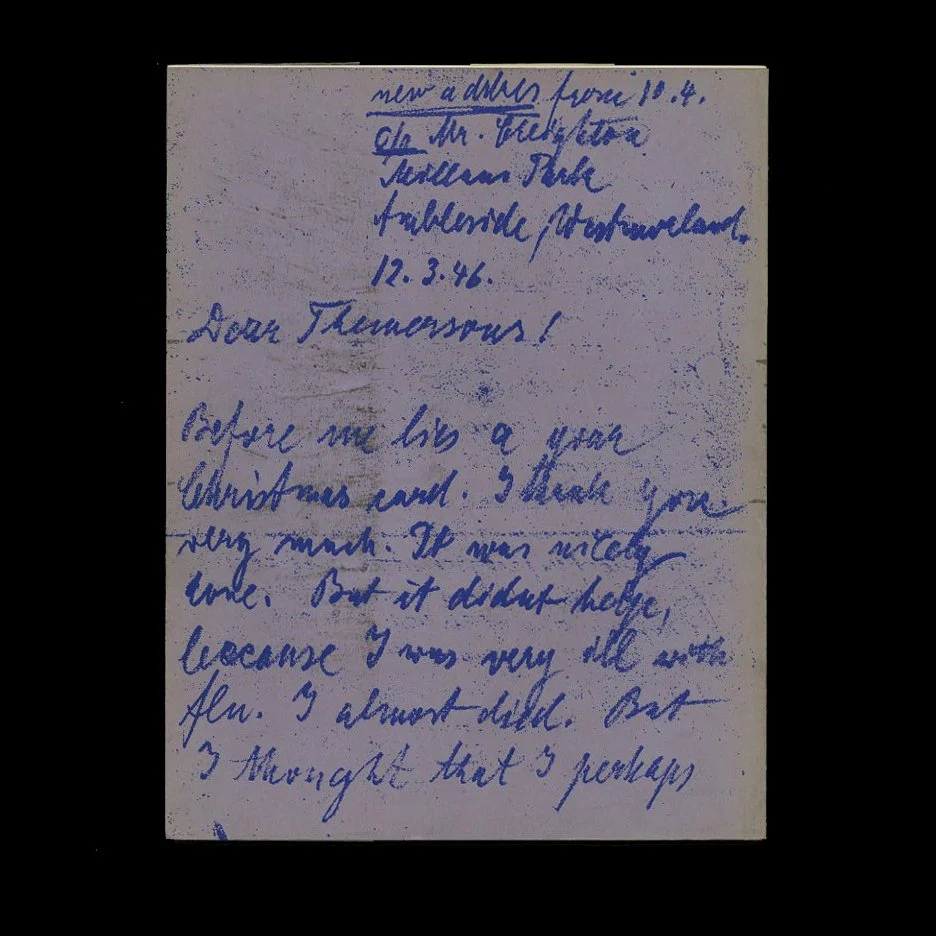 new address from 10.4.
c/o Mr. Creighton
Millans Park
Ambleside, Westmoreland.
12.3.46.
Dear Themersons!
Before me lies a your
Christmas card. I thank you
very much. It was nicely
done. But it didnt help,
because I was very ill with
flu. I almost died. But
I thought that I perhaps